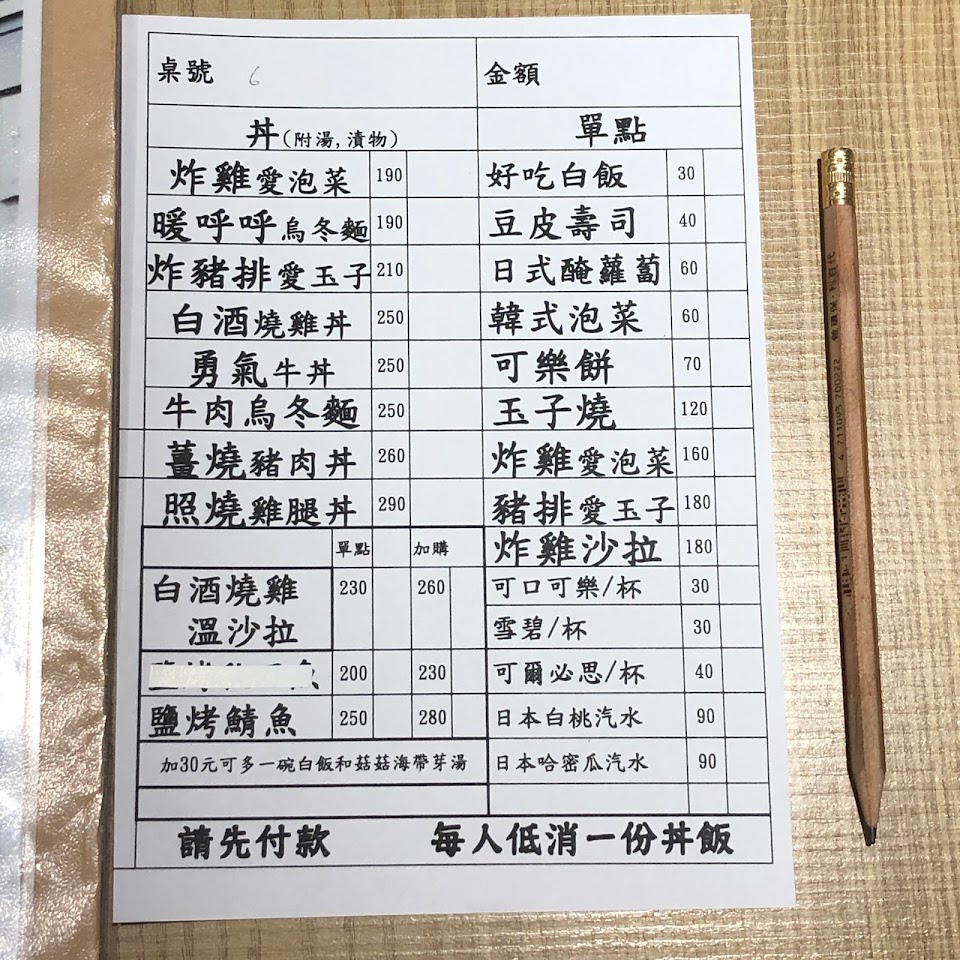 桌號 6 金額
丼(附湯,漬物) 單點
炸雞愛泡菜 190 好吃白飯 30
暖呼呼烏冬麵 190 豆皮壽司 40
炸豬排愛玉子 210 日式醃蘿蔔 60
白酒燒雞丼 250 韓式泡菜 60
勇氣牛丼 250 可樂餅 70
牛肉烏冬麵 250 玉子燒 120
薑燒豬肉丼 260 炸雞愛泡菜 160
照燒雞腿丼 290 豬排愛玉子 180
單點 加購 炸雞沙拉 180
白酒燒雞 230 260 可口可樂/杯 30
溫沙拉 雪碧/杯 30
200 230 可爾必思/杯 40
鹽烤鯖魚 250 280 日本白桃汽水 90
加30元可多一碗白飯和菇菇海帶芽湯 日本哈密瓜汽水 90
請先付款 每人低消一份丼飯